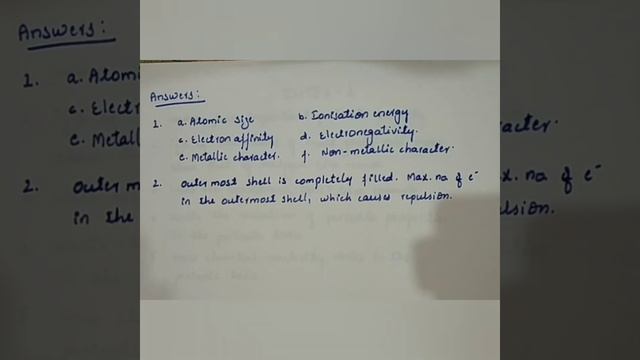 Answers:
1. a. Atomic size b. Ionisation energy
c. Electron affinity d. Electronegativity.
e. Metallic character. f. Non-metallic character.
2. Outermost shell is completely filled. Max. no of e⁻
in the outermost shell, which causes repulsion.